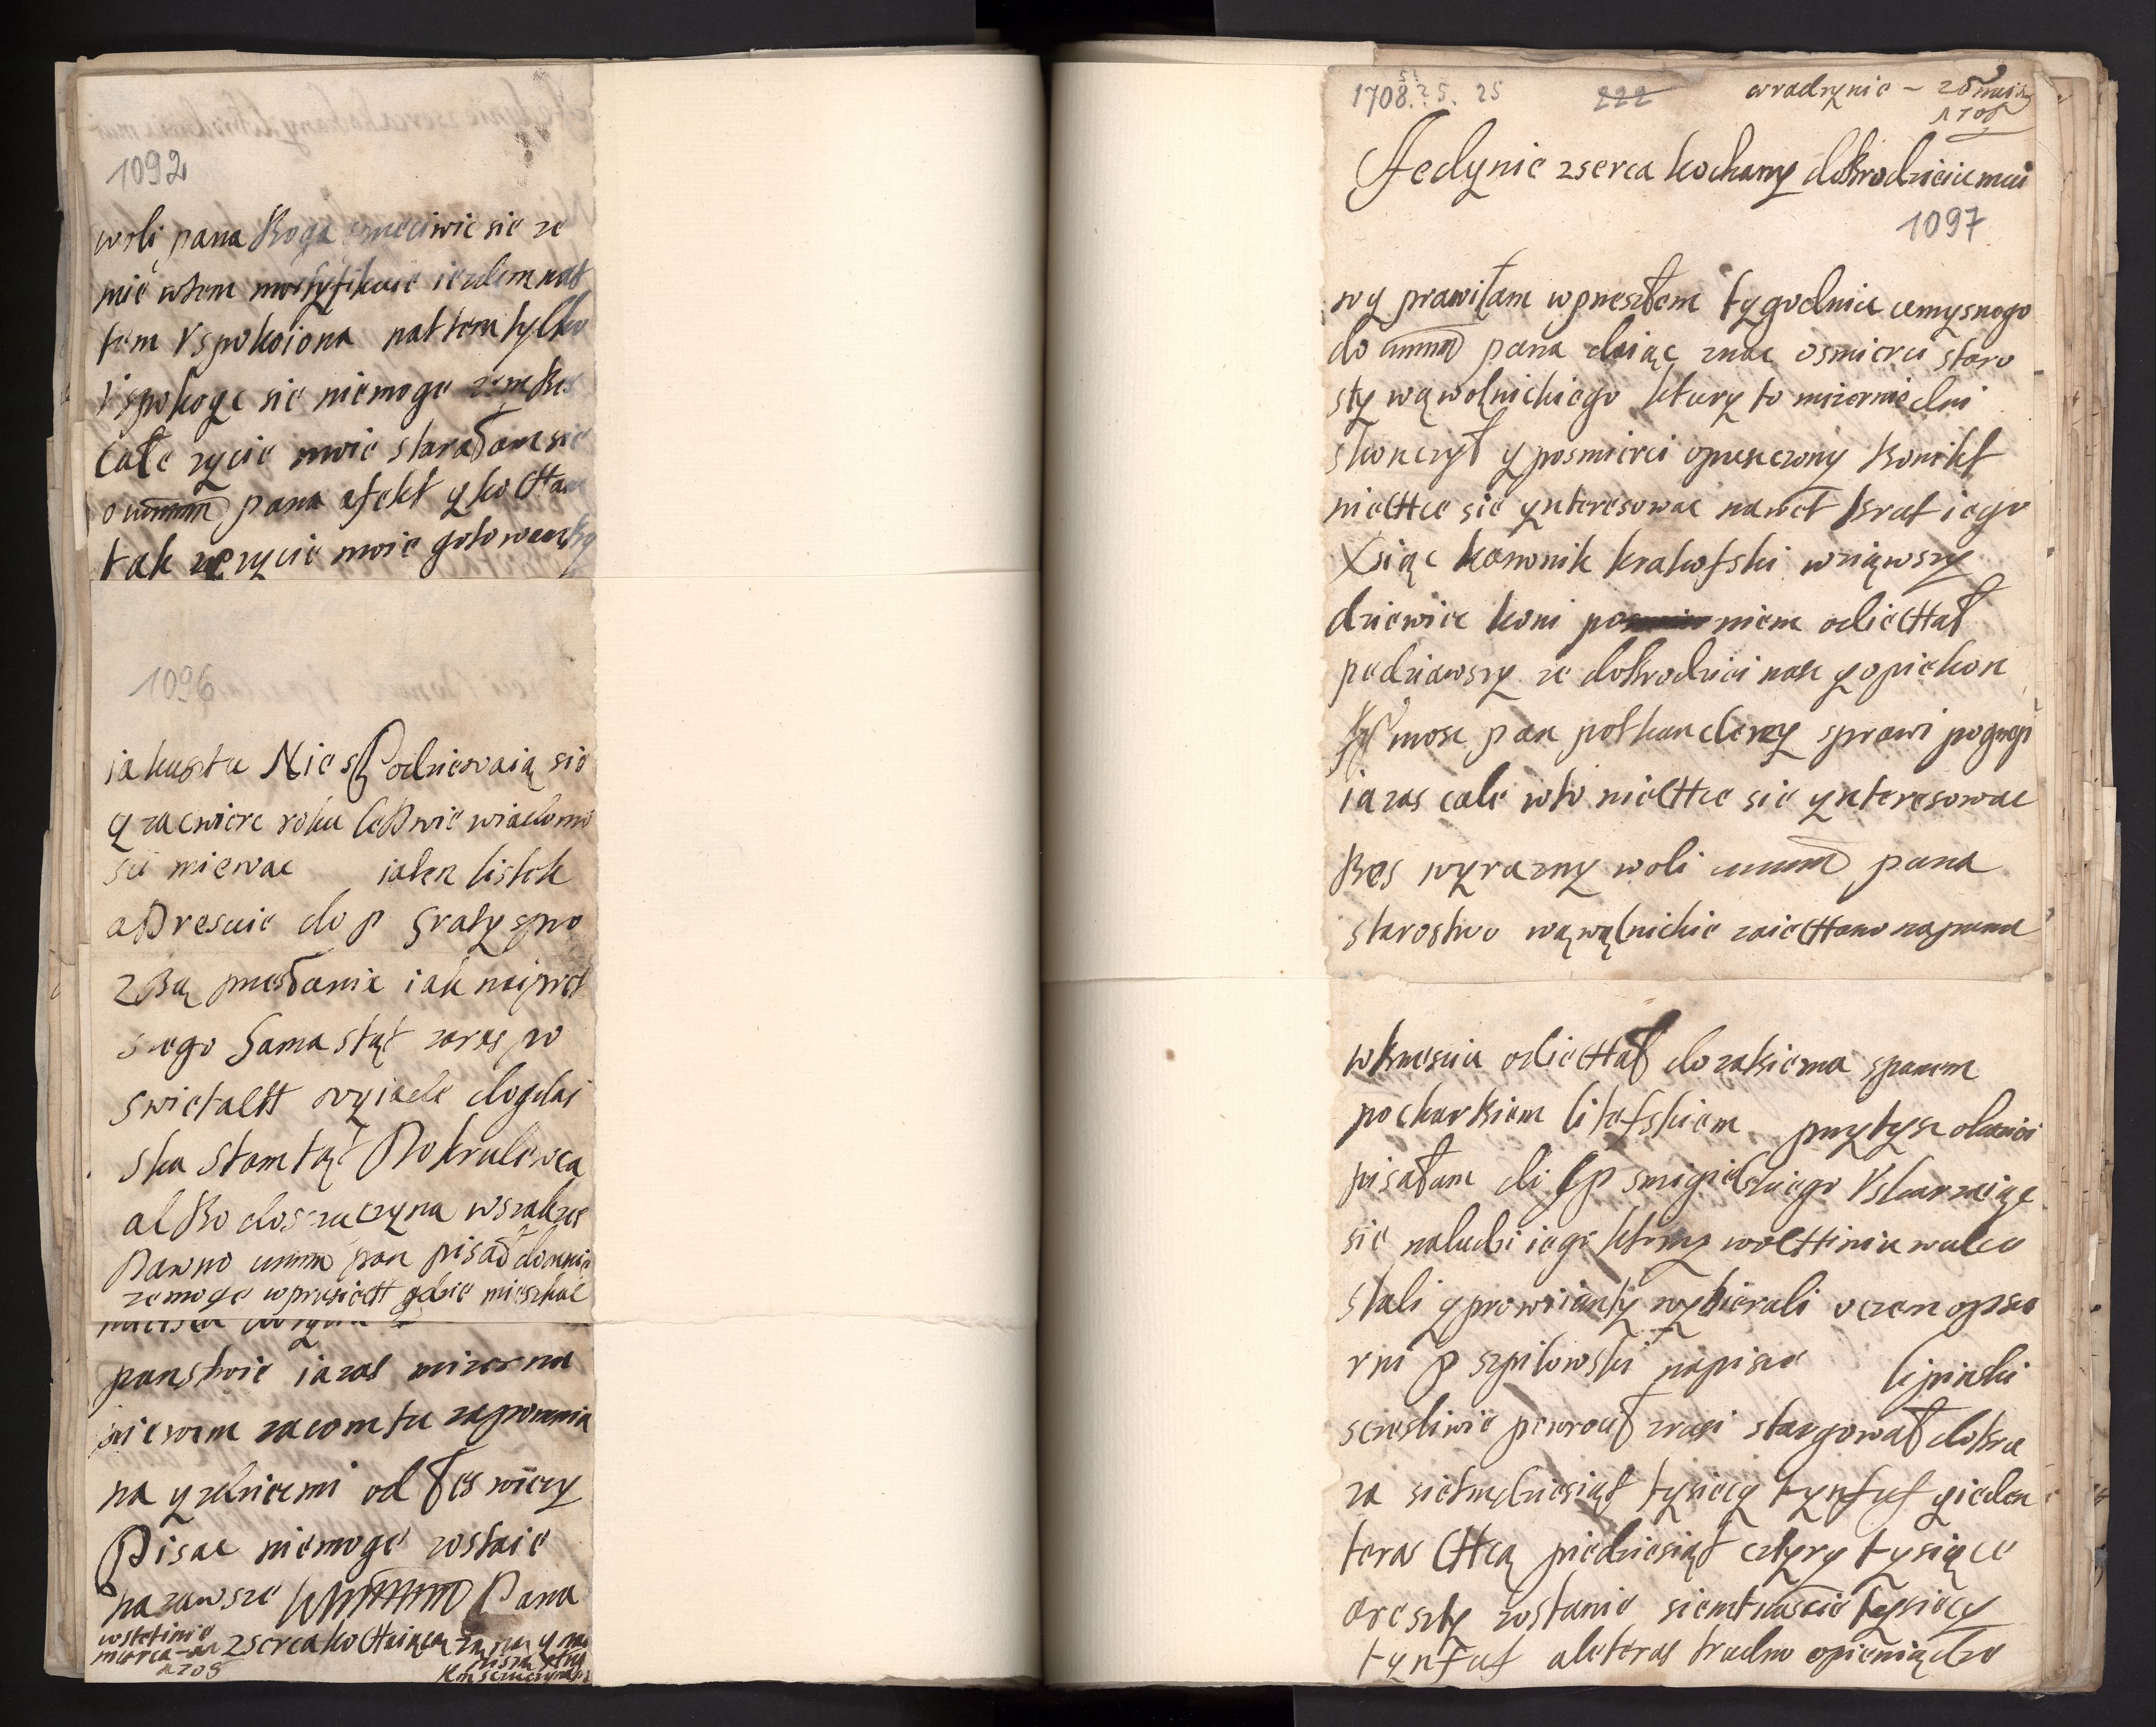 1092
woli pana Boga sie ze
mie wtem mortyfikuie iezdem nat
tem Vspokoiona nattem tylko
Vspokoyc sie niemoge
Całe zycie moie starałam sie
o wmm pana afekt y koCHa
tak zezycie moie
1096
iakustu Nie sPodziewaią sie
y zacwierc roku leBwie wiadomo
sci miewac iaten listek
aDresuie do p Graty spro
zBą przesłanie iak naipret
szego Sama stąt zaras po
swietaCH wyiade dogdai
ska stamtąt Do krulewca
alBo doszuczyna wszakze
Dawno wmm pan pisał domnie
zemoge wprusieCH gdzie mieszkac
panstwie ia zas mizerna
niewem zacomtu zapomnia
na y zelziemi od łes wiecy
Pisac niemoge zostaie
nazawsze wmmm Pana
wstetinie zserca koCHaiącą zoną y
marca 1708
1708. 5. 25 222 wradzynie – 25 maia
1708
Jedynie zserca kochany doBrodzieiu mui
1097
wy prawiłam wprzeszłem tygodniu umysnego
do wmm pana daiąc znac osmierci staro
sty wąwolnickiego ktury to mizernie dni
skonczył y posmierci opusczony Bo nikt
nieCHce sie ynteresowac nawet Brat iego
Xsiąc kanonik krakofski wziąwszy
dziewiec koni po niem odieCHał
pedziawszy ze doBrodzici nasz y opiekon
mosc pan potkanclerzy sprawi pogrzep
ia zas cale wto nieCHce sie ynteresowac
Bes wyrazny woli wmm pana
starostwo wąwąlnickie zaieCHano na pana
odieCHał dozabiema spanem
pocharBiem litefskiem przytysz okazici
pisałam di Jp smigielskiego Vskarzaiąc
sie naludzi iego ktorzy wolCHiniu walec
stali y prowianty wybierali oczem opser
rni p szpilowski napisze lipinski
sczesliwie powrocił stargował doBra
za sietmdziesiąt tysiecy tynfuf y ieden
teras CHcą piedziesiąt cztyry tysiące
areszty zostanie siemtnascie tysiecy
tynfuf aleteras trudno opieniądze